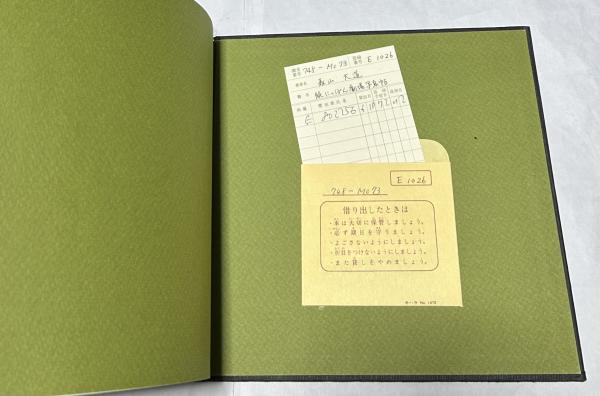 図書番号 748-Mo73 登録番号 E 1026
著者名 森山 大道
書名 続にっぽん劇場写真帖
E 1026
748-Mo73
借り出したときは
・本は大切に保管しましょう。
・必ず期日を守りましょう。
・よごさないようにしましょう。
・折目をつけないようにしましょう。
・また貸しをやめましょう。